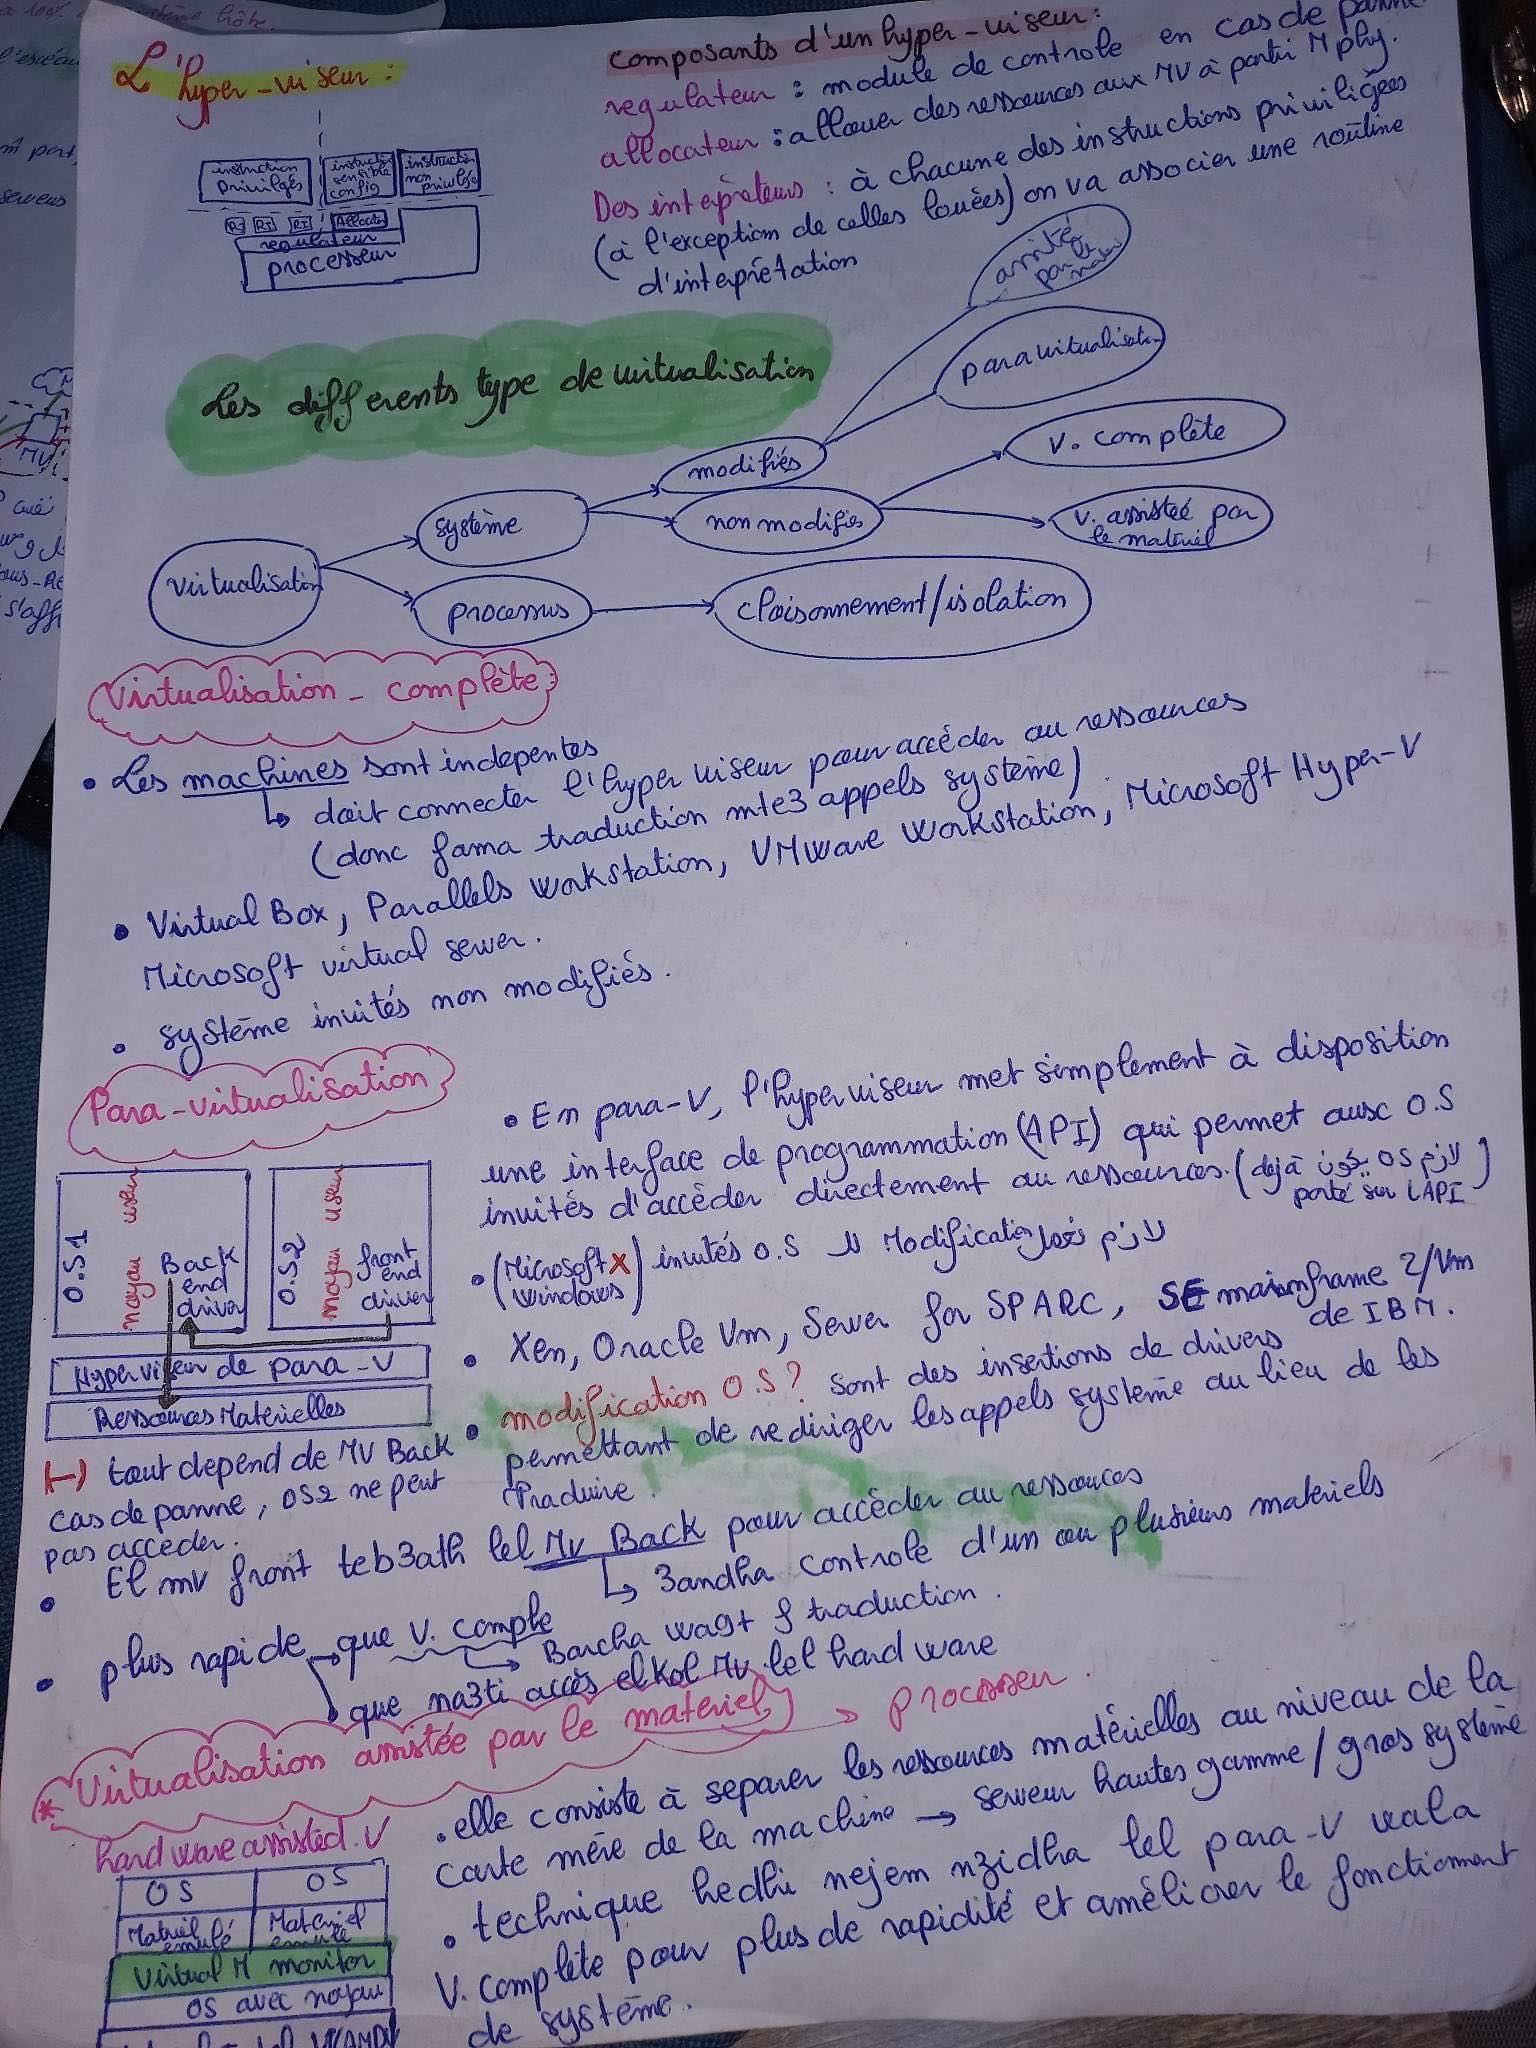 L'hyper-viseur :
instruction privilégés
instructi sensible config
instruction non privilégé
RI RI RI Allocate
regulateur
processeur
composants d'un hyper-viseur :
regulateur : module de controle en cas de panne
allocateur : allouer des ressources aux MV à partir M phy.
Des interpréteurs : à chacune des instructions privilégées
(à l'exception de celles louées) on va associer une routine
d'interprétation
Les differents type de virtualisation
assisté par le materi
paravirtualisati
modifiés
v. complète
système
non modifiés
v. assisteé par le matériel
virtualisation
processus
cloisonnement/isolation
Virtualisation - complète :
• Les machines sont indepentes
↳ doit connecter l'hyper viseur pour accéder au ressources
(donc fama traduction mte3 appels système)
• Virtual Box, Parallels Workstation, VMware Workstation, Microsoft Hyper-V
Microsoft virtual server.
• système invités non modifiés.
Para-virtualisation
O.S1
noyau user
Back end driver
O.S2
noyau user
front end driver
Hyperviseur de para-V
Ressources Matérielles
(-) tout depend de MV Back
cas de panne, OS2 ne peut
pas acceder.
• En para-V, l'hyperviseur met simplement à disposition
une interface de programmation (API) qui permet aux O.S
invités d'accéder directement au ressources. (لازم OS يكون dejà
porté sur l API)
• (Microsoft windows X) invités O.S لل Modification لازم نعمل
• Xen, Oracle Vm, Server for SPARC, SE mainframe Z/Vm
de IBM.
• modification O.S? sont des insertions de drivers
permettant de rediriger les appels système au lieu de les
traduire.
• El mv front teb3ath lel Mv Back pour accéder au ressources
↳ 3andha controle d'un ou plusieurs materiels
• plus rapide que V. comple
→ Barcha wa9t f traduction.
que na3ti accès elkol Mv lel hard ware
* Virtualisation assistée par le matériel → processeur.
hardware assisted. V
OS OS
Matriel emulé Materiel emulé
Virtual M monitor
OS avec noyau
• elle consiste à separer les ressources matérielles au niveau de la
carte mère de la machine → serveur hautes gamme/gros système
• technique hedhi nejem nzidha lel para-V wala
V. complète pour plus de rapidité et améliorer le fonctionment
de système.